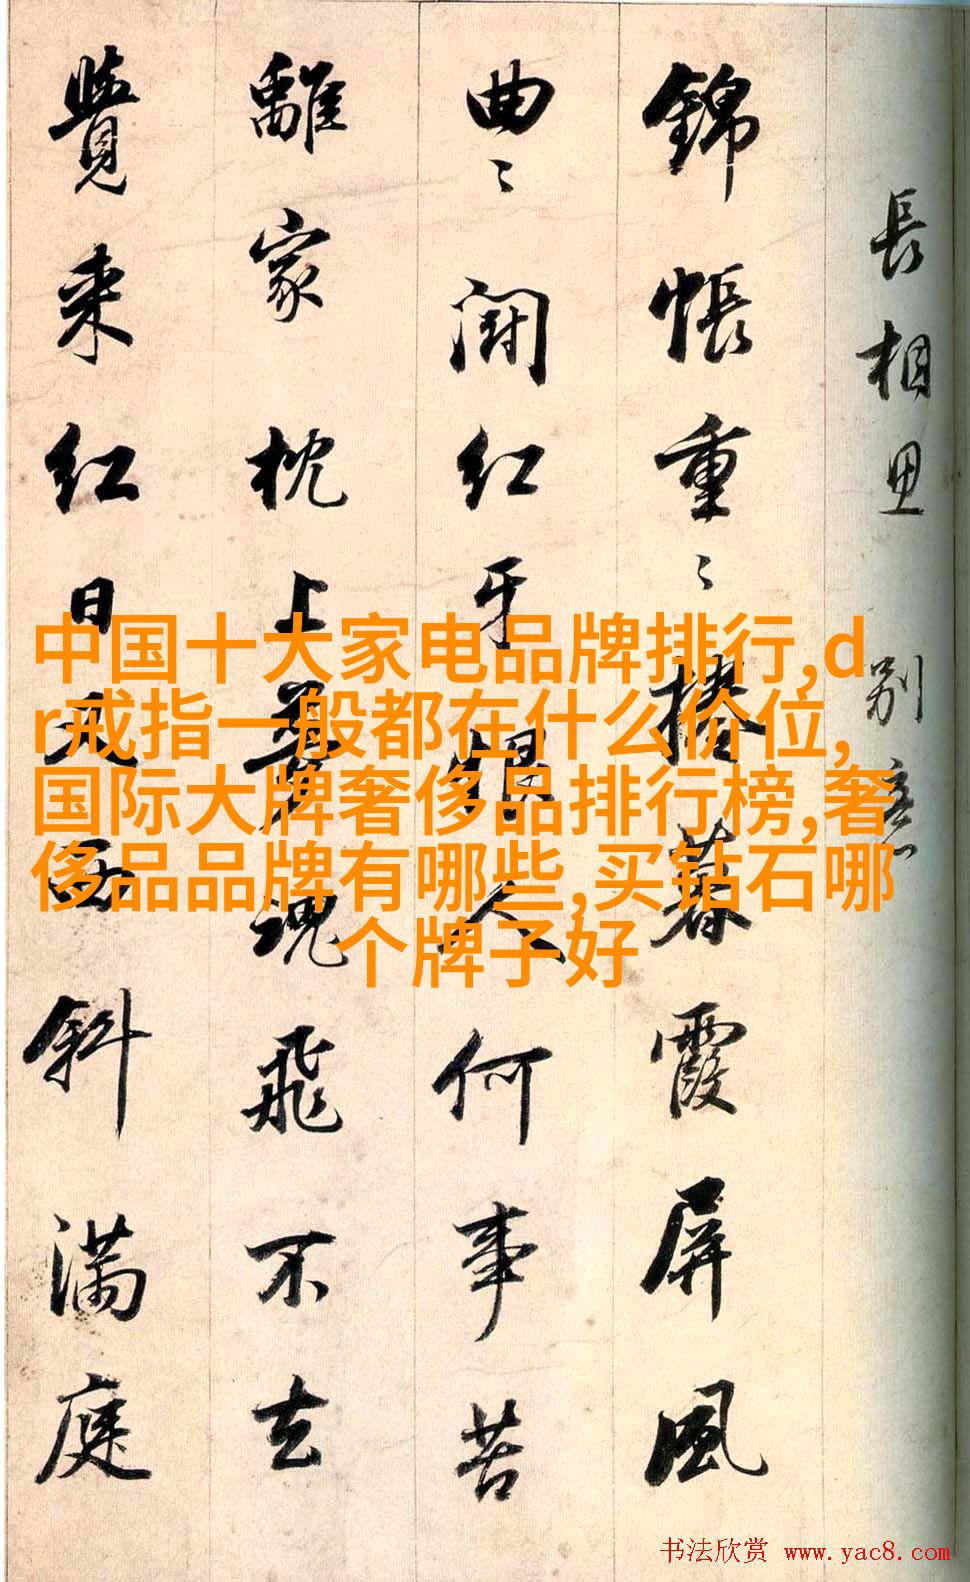 長相思 別意
錦帳重〻捲暮霞屏風
曲〻紅牙恨人何事苦
離家枕上夢魂飛不去
覺來紅日又西斜滿庭
中国十大家电品牌排行,d
r戒指一般都在什么价位,
国际大牌奢侈品排行榜,奢
侈品品牌有哪些,买钻石哪
个牌子好
书法欣赏 www.yac8.com